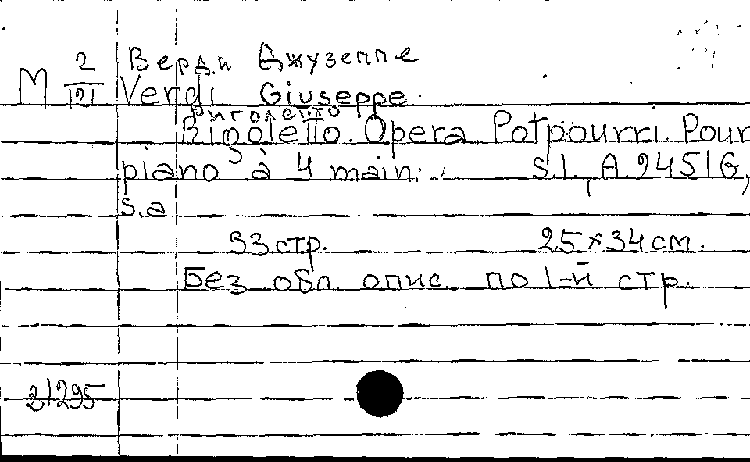 Верди Джузеппе
M 2/121 Verdi Giuseppe.
Риголетто
Rigoletto. Opera Potpourri. Pour
piano à 4 main. s.l., A. 9451 G,
s.a
33 стр. 25x34 см.
Без обл. опис. по 1-й стр.
21295